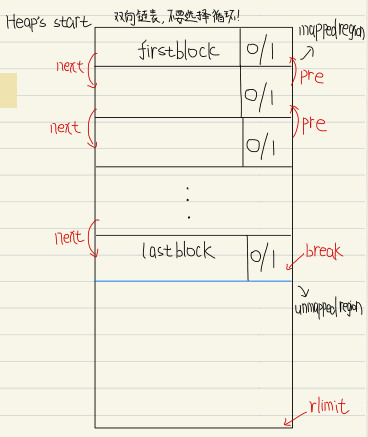 Heap's start
双向链表,不要选择循环!
mapped region
firstblock 0/1
next
pre
0/1
next
pre
0/1
⋮
next
lastblock 0/1
break
unmapped region
rlimit